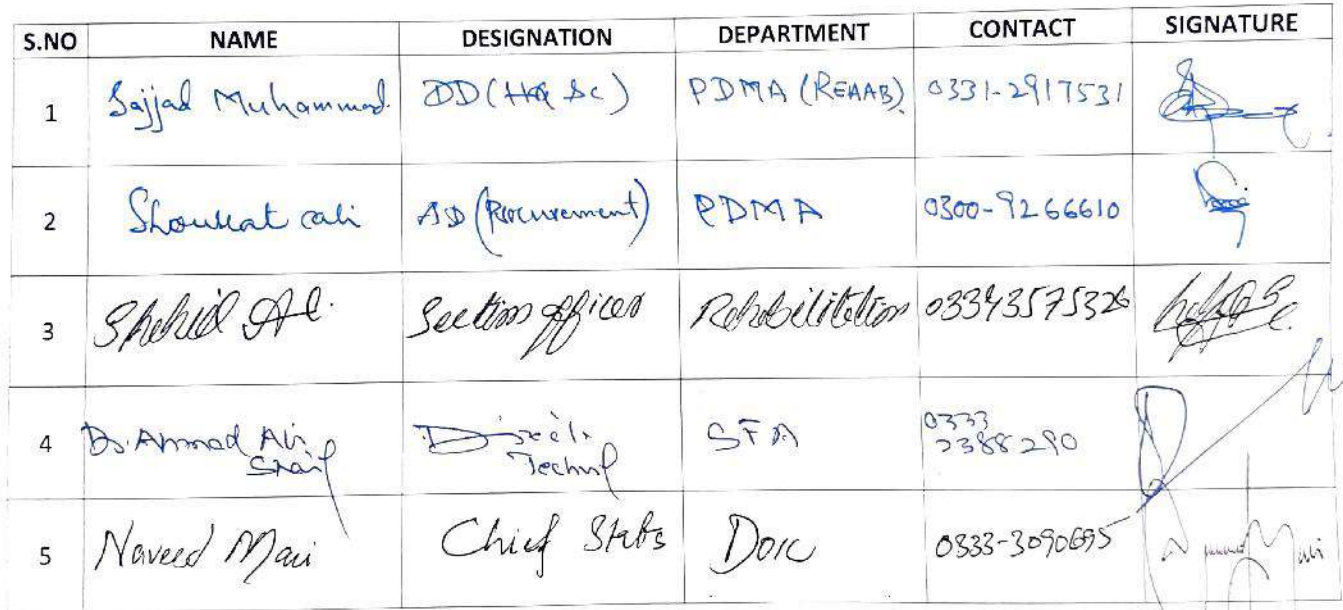 S.NO NAME DESIGNATION DEPARTMENT CONTACT SIGNATURE
1 Sajjad Muhammad. DD (HQ Sc) PDMA (REAAB) 0331-2917531
2 Shoukat cali AD (Procurement) PDMA 0300-9266610
3 Shahid Section officer Rehabilitation 03343575326
4 Dr. Ahmad Ali SFA 0333
2388290
5 Naveed Mari Chief Stats 0333-3090695